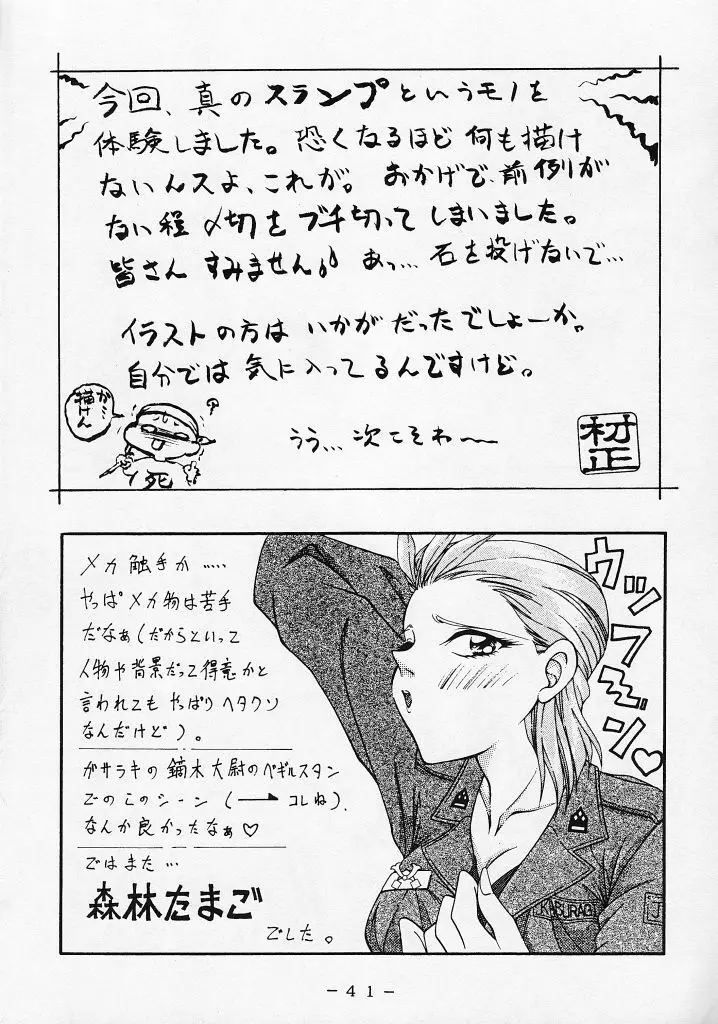 今回、真のスランプというモノを
体験しました。恐くなるほど何も描け
ないんスよ、これが。おかげで、前例が
ない程〆切をブチ切ってしまいました。
皆さんすみません♪あっ…石を投げないで…
イラストの方はいかがだったでしょーか。
自分では気に入ってるんですけど。
うう…次こそわ〜
が…
描けん
死
村正
メカ触手か……
やっぱメカ物は苦手
だなぁ(だからといって
人物や背景だって得意かと
言われてもやっぱりヘタクソ
なんだけど)。
ガサラキの鏑木大尉のベギルスタン
でのこのシーン(→コレね)、
なんか良かったなぁ♡
ではまた…
森林たまご
でした。
ウッフ〜ン♡
KABURAGI
J
-41-